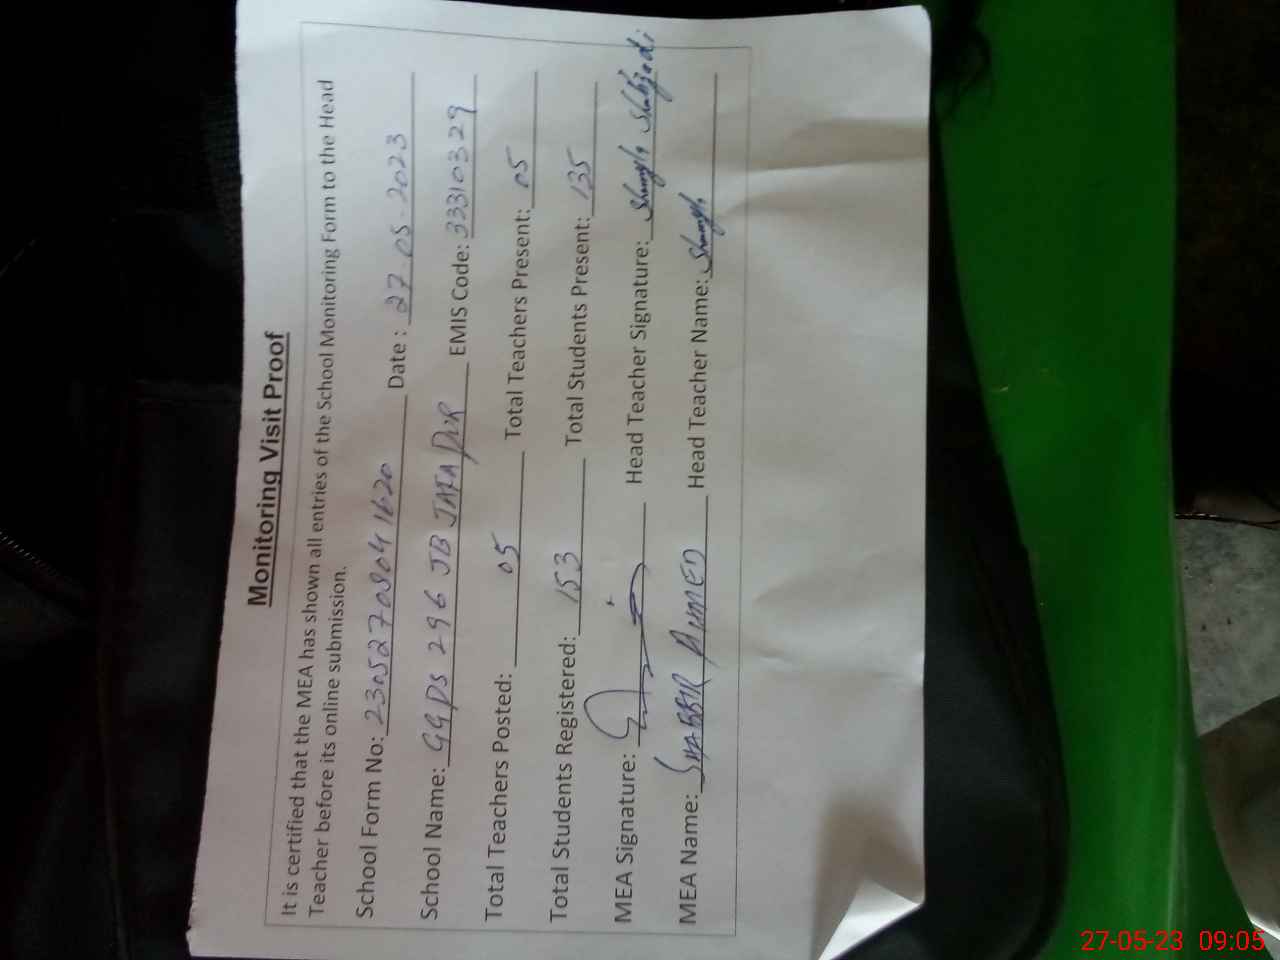 Monitoring Visit Proof
It is certified that the MEA has shown all entries of the School Monitoring Form to the Head
Teacher before its online submission.
School Form No: 23052709041620 Date : 27-05-2023
School Name: GGPS 296 JB JAFA PUR EMIS Code: 33310329
Total Teachers Posted: 05 Total Teachers Present: 05
Total Students Registered: 153 Total Students Present: 135
MEA Signature: Head Teacher Signature:
MEA Name: SHABBIR AHMED Head Teacher Name:
27-05-23 09:05